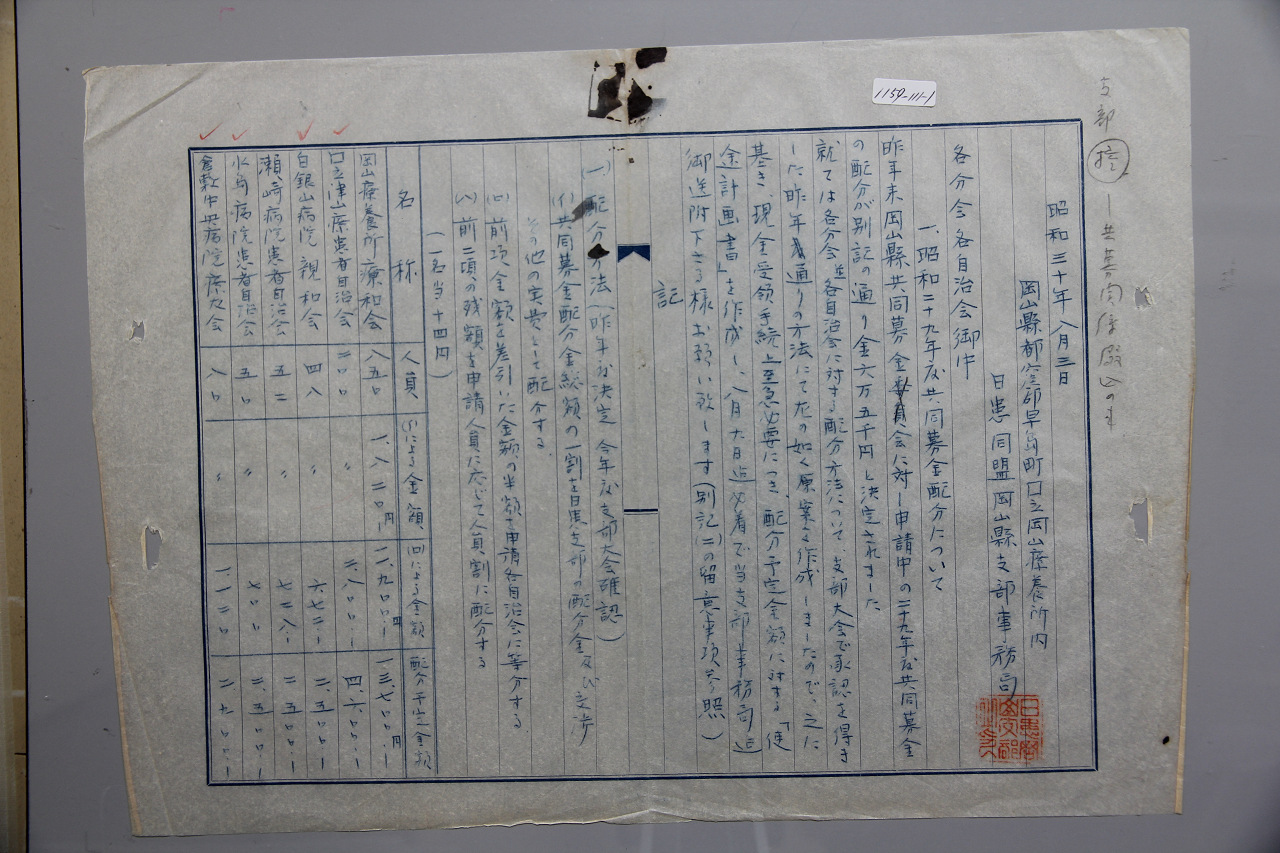 1154-111-1
支部
昭和三十年八月三日
岡山縣都窪郡早島町国立岡山療養所内
日患同盟岡山縣支部事務局
各分会各自治会御中
一、昭和二十九年度共同募金配分について
昨年末岡山縣共同募金委員会に対し申請中の二十九年度共同募金
の配分が別記の通り金六万五千円と決定されました
就ては各分会並各自治会に対する配分方法について、支部大会で承認を得き
した昨年通りの方法にて左の如く原案を作成しましたので、之に
基き、現金受領手続上至急必要につき、配分予定金額に対する「使
途計画書」を作成し、八月六日迄必着で当支部事務局迄
御送附下さる様お願い致します(別記(二)の留意事項参照)
記
(一)配分方法(昨年度決定 今年度支部大会確認)
(イ)共同募金配分金総額の一割を日患支部の配分金及び交渉
その他の実費として配分する。
(ロ)前項金額を差引いた金額の半額を申請各自治会に等分する
(ハ)前二項の残額を申請人員に応じて人員割に配分する
(一名当十四円)
名称 人員 (ロ)による金額 (ハ)による金額 配分予定金額
岡山療養所療和会 八五〇 一、八二〇円 一一、九〇〇円 一三、七〇〇円
国立津山療患者自治会 二〇〇 〃 二、八〇〇、ー 四、六〇〇、ー
白銀山病院 親和会 四八 〃 六七二、ー 二、五〇〇、ー
瀬崎病院患者自治会 五二 〃 七二八、ー 二、五〇〇、ー
水島病院患者自治会 五〇 〃 七〇〇、ー 二、五〇〇、ー
倉敷中央病院療友会 八〇 〃 一、一二〇 二、九〇〇、ー